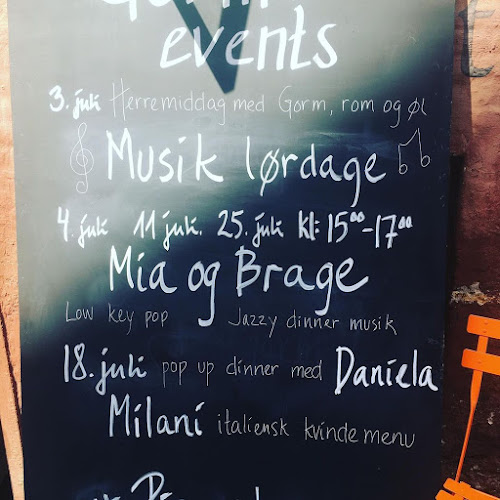 events
3. juli Herremiddag med Gorm, rom og øl
Musik lørdage
4. juli 11 juli. 25. juli kl: 15⁰⁰-17⁰⁰
Mia og Brage
Low key pop Jazzy dinner musik
18. juli pop up dinner med Daniela
Milani italiensk kvinde menu